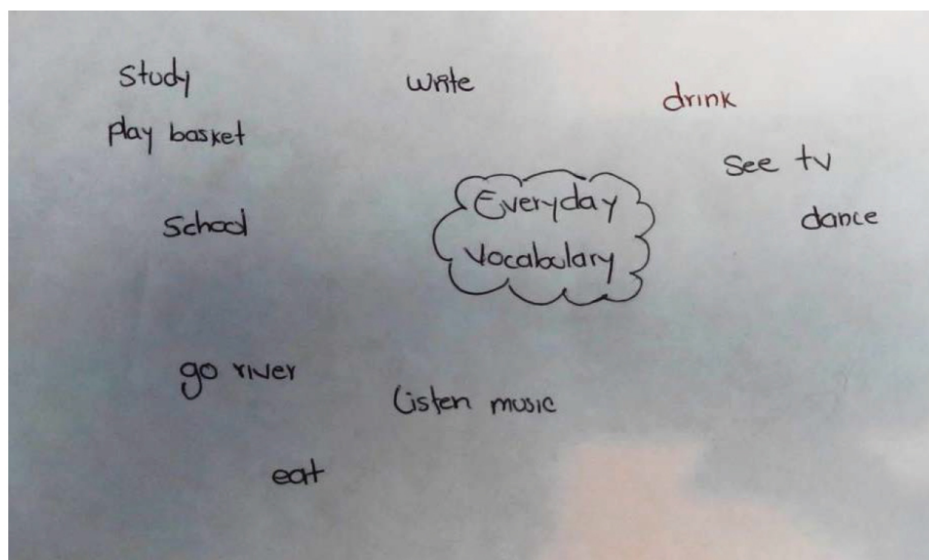 study
write
drink
play basket
see tv
Everyday
Vocabulary
School
dance
go river
Listen music
eat